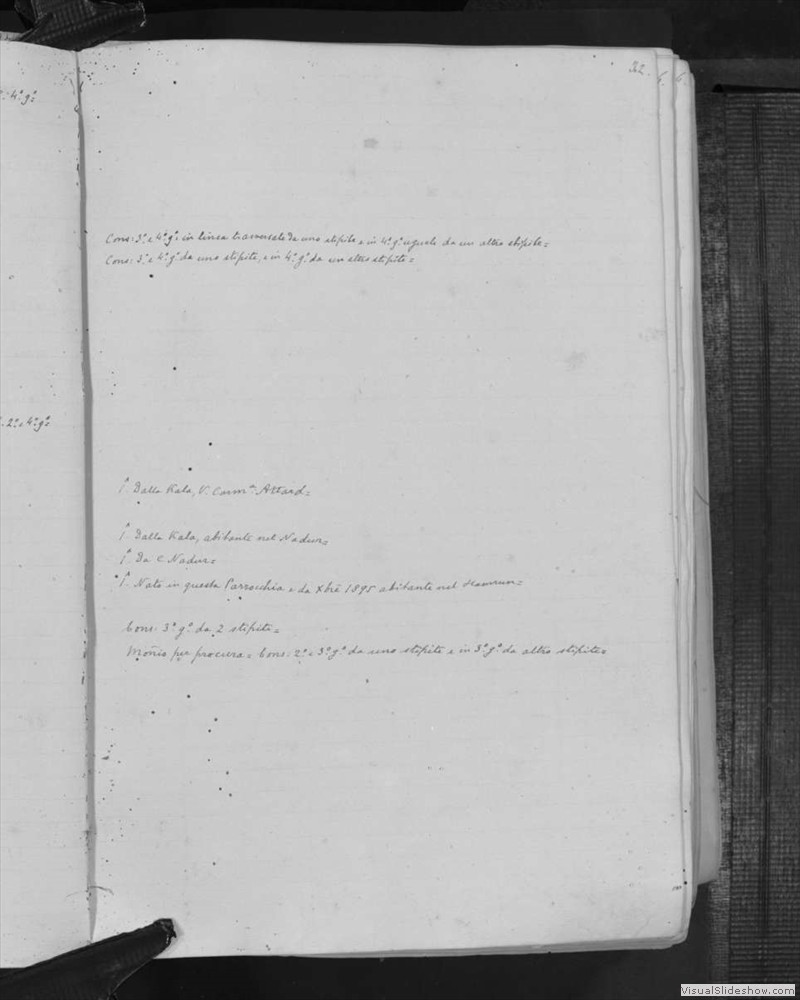 32.
4º gº=
Cons: 3º e 4º gº: in linea trasversale da uno stipite e in 4º gº uguale da un altro stipite=
Cons: 3º e 4º gº da uno stipite, e in 4º gº da un altro stipite=
2º e 4º gº=
Dalla Kala, V. Carmª Attard=
Dalla Kala, abitante nel Nadur=
Da C. Nadur=
Nato in questa Parrocchia e da Xbre 1895 abitante nel Hamrun=
Cons: 3º gº da 2 stipiti=
per procura= Cons: 2º e 3º gº da uno stipite e in 3º gº da altro stipite=
VisualSlideshow.com